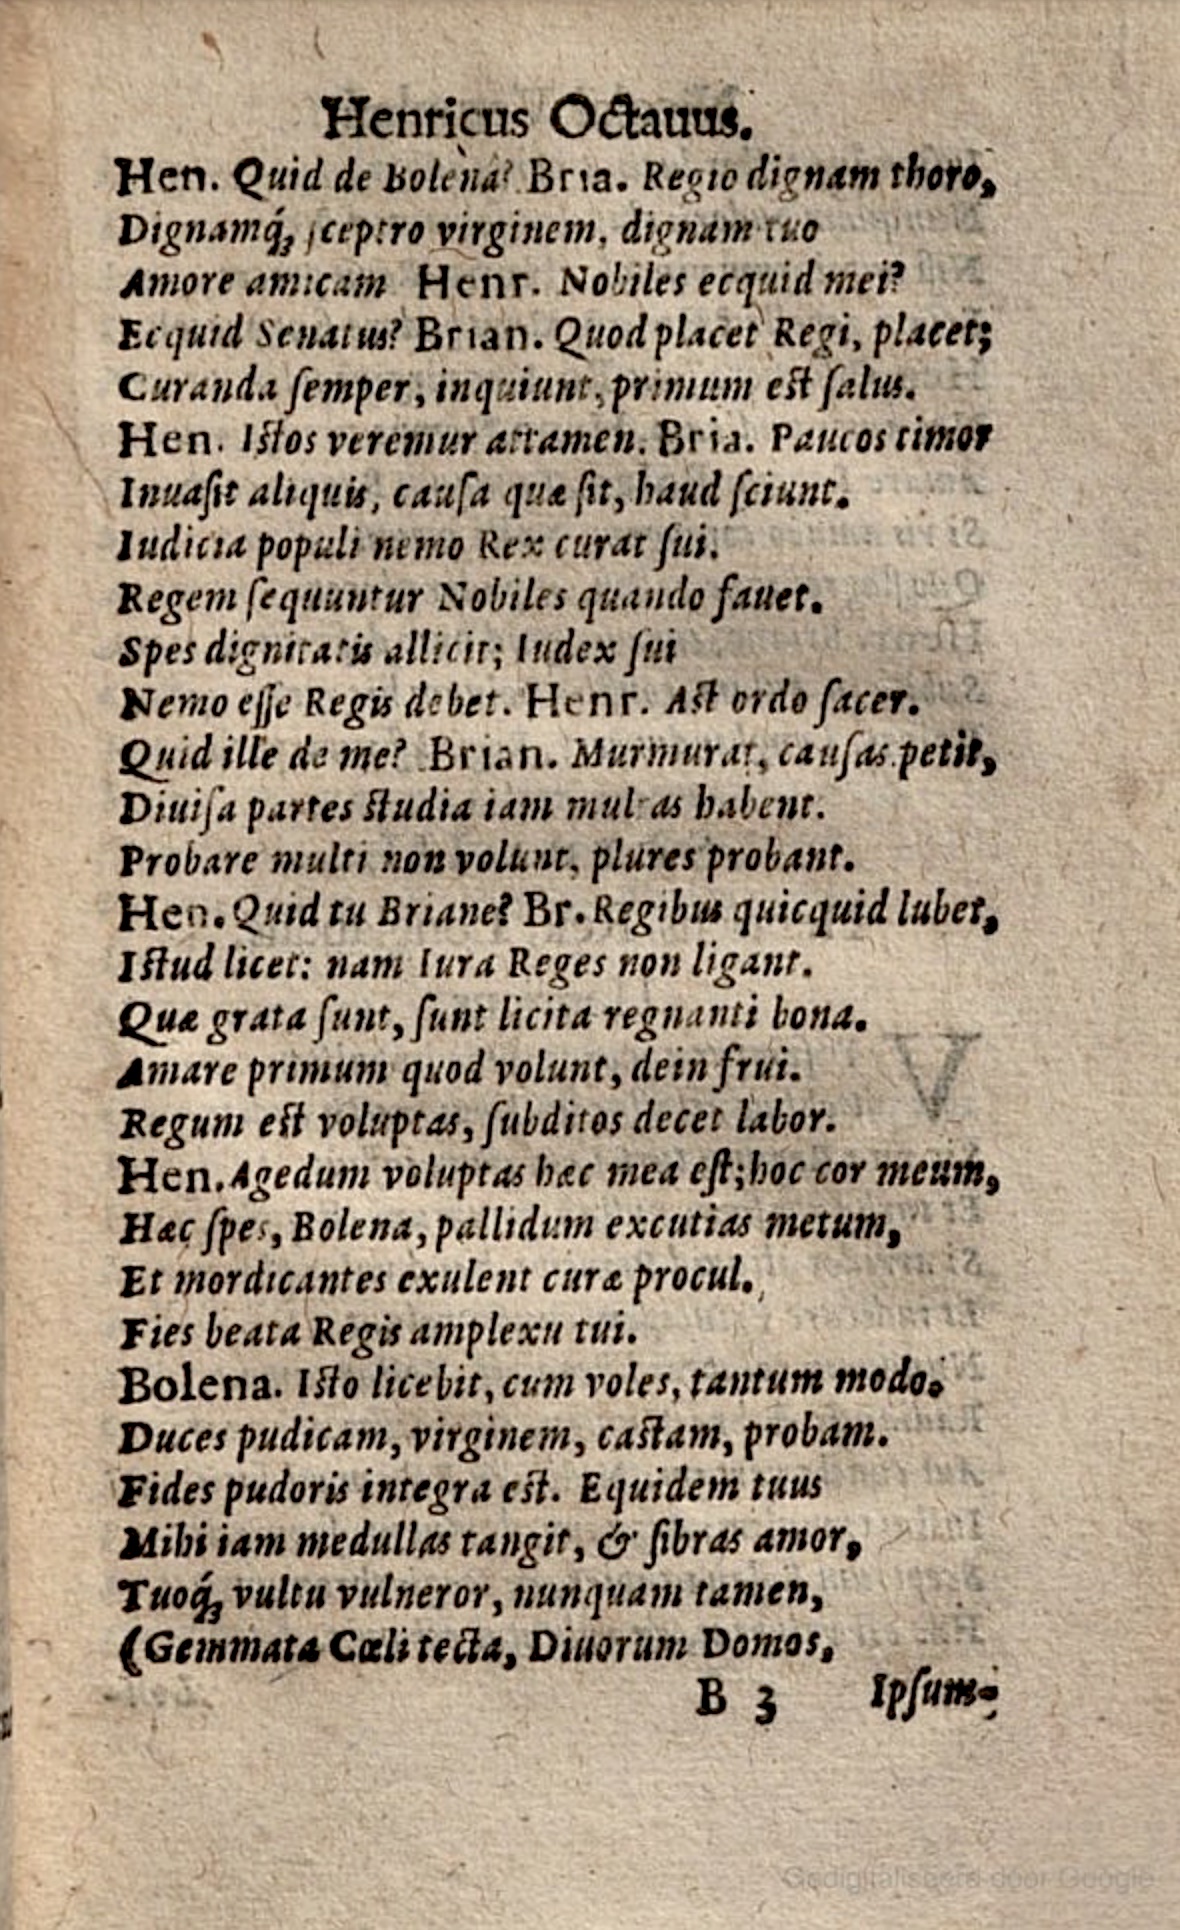 Henricus Octauus.
Hen. Quid de Bolena? Bria. Regio dignam thoro,
Dignamq́; ſceptro virginem, dignam tuo
Amore amicam Henr. Nobiles ecquid mei?
Ecquid Senatus? Brian. Quod placet Regi, placet;
Curanda ſemper, inquiunt, primum est ſalus.
Hen. Istos veremur attamen. Bria. Paucos timor
Inuaſit aliquis, cauſa quæ ſit, haud ſciunt.
Iudicia populi nemo Rex curat ſui.
Regem ſequuntur Nobiles quando fauet.
Spes dignitatis allicit; Iudex ſui
Nemo eſſe Regis debet. Henr. Ast ordo ſacer.
Quid ille de me? Brian. Murmurat, cauſas petit,
Diuiſa partes studia iam multas habent.
Probare multi non volunt, plures probant.
Hen. Quid tu Briane? Br. Regibus quicquid lubet,
Istud licet: nam Iura Reges non ligant.
Quæ grata ſunt, ſunt licita regnanti bona.
Amare primum quod volunt, dein frui.
Regum est voluptas, ſubditos decet labor.
Hen. Agedum voluptas hæc mea eſt; hoc cor meum,
Hæc ſpes, Bolena, pallidum excutias metum,
Et mordicantes exulent curæ procul.
Fies beata Regis amplexu tui.
Bolena. Isto licebit, cum voles, tantum modo.
Duces pudicam, virginem, castam, probam.
Fides pudoris integra est. Equidem tuus
Mihi iam medullas tangit, & fibras amor,
Tuoq́; vultu vulneror, nunquam tamen,
(Gemmata Cœli tecta, Diuorum Domos,
B 3 Ipſum-
Gedigitaliseerd door Google